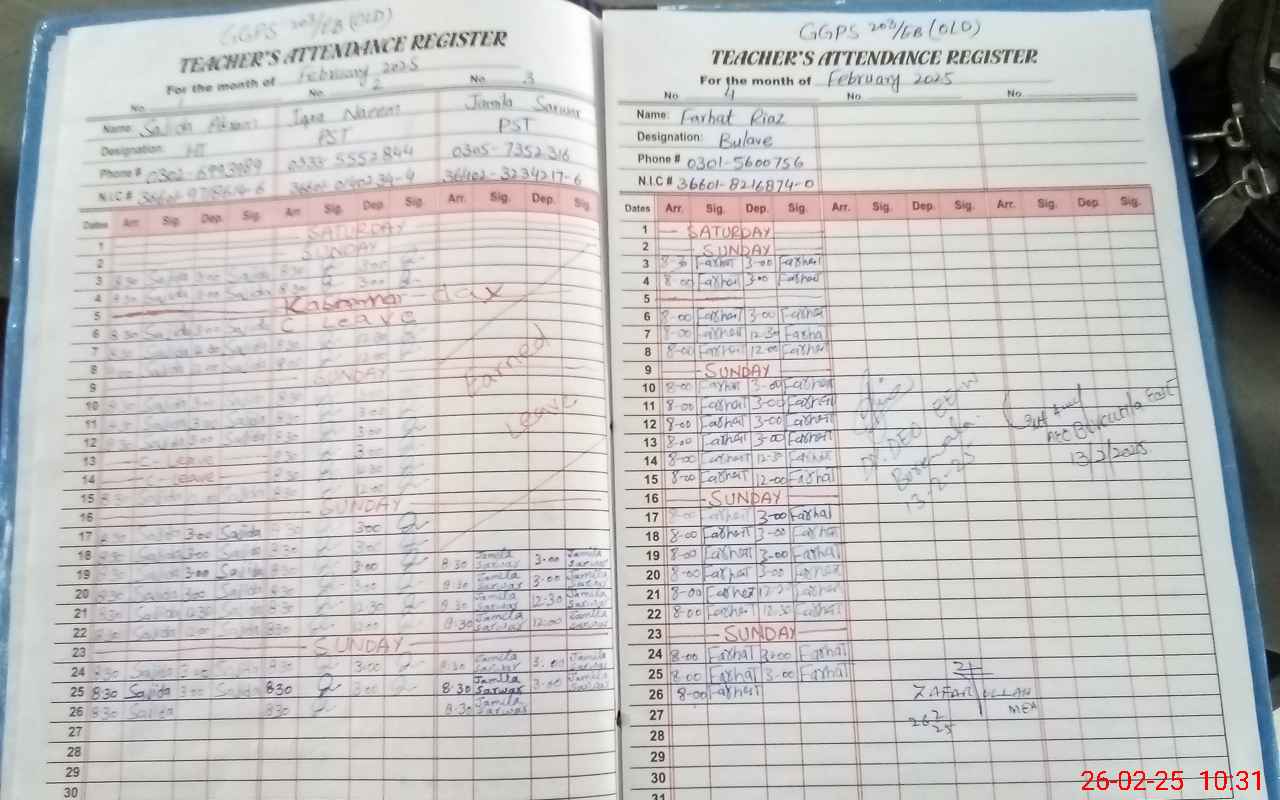 GGPS 203/EB (OLD)
TEACHER'S ATTENDANCE REGISTER
For the month of February 2025
No 1 No 2 No 3
Name: Sajida Iqra Nareem Jamila Sarwar
Designation: HT PST PST
Phone # 0302-6993989 0333-5552844 0305-7352316
N.I.C # 36402-3234217-6
Dates Arr. Sig. Dep. Sig. Arr. Sig. Dep. Sig. Arr. Sig. Dep. Sig.
1 SATURDAY
2 SUNDAY
3 8:30 Sajida 3:00 Sajida 8:30 3:00
4 8:30 Sajida 3:00 Sajida 8:30 3:00
5 Kashmir Day
6 8:30 Sajida 3:00 Sajida C Leave
7 8:30 Sajida Sajida 8:30
8 8:30 Sajida Sajida 8:30
9 SUNDAY
10 8:30 Sajida 3:00 Sajida 8:30
11 8:30 Sajida 3:00 Sajida 8:30 3:00
12 8:30 Sajida 3:00 Sajida 8:30 3:00
13 C-Leave 8:30
14 C-Leave 8:30
15 8:30 Sajida Sajida 8:30 12:00
Earned
Leave
16 SUNDAY
17 8:30 Sajida 3:00 Sajida 8:30 3:00
18 8:30 Sajida 3:00 Sajida 8:30 3:00
19 8:30 Sajida 3:00 Sajida 8:30 3:00 8:30 Jamila Sarwar 3:00 Jamila Sarwar
20 8:30 Sajida 3:00 Sajida 8:30 3:00 8:30 Jamila Sarwar 3:00 Jamila Sarwar
21 8:30 Sajida 12:30 Sajida 8:30 12:30 8:30 Jamila Sarwar 12:30 Jamila Sarwar
22 8:30 Sajida 12:00 Sajida 8:30 12:00 8:30 Jamila Sarwar 12:00 Jamila Sarwar
23 SUNDAY
24 8:30 Sajida 3:00 Sajida 8:30 3:00 8:30 Jamila Sarwar 3:00 Jamila Sarwar
25 8:30 Sajida 3:00 Sajida 8:30 3:00 8:30 Jamila Sarwar 3:00 Jamila Sarwar
26 8:30 Sajida 8:30 8:30 Jamila Sarwar
27
28
29
30
GGPS 203/EB (OLD)
TEACHER'S ATTENDANCE REGISTER
For the month of February 2025
No 4 No No
Name: Farhat Riaz
Designation: Bulave
Phone # 0301-5600756
N.I.C # 36601-8216874-0
Dates Arr. Sig. Dep. Sig. Arr. Sig. Dep. Sig. Arr. Sig. Dep. Sig.
1 SATURDAY
2 SUNDAY
3 8-30 Farhat 3-00 Farhat
4 8-00 Farhat 3-00 Farhat
5
6 8-00 Farhat 3-00 Farhat
7 8-00 Farhat 12-30 Farhat
8 8-00 Farhat 12-00 Farhat
9 SUNDAY
10 8-00 Farhat 3-00 Farhat
11 8-00 Farhat 3-00 Farhat
12 8-00 Farhat 3-00 Farhat
13 8-00 Farhat 3-00 Farhat
14 8-00 Farhat 12-30 Farhat
15 8-00 Farhat 12-00 Farhat
Dy. DEO EE-W
Burewala
13-2-25
13/2/2025
16 SUNDAY
17 8-00 Farhat 3-00 Farhat
18 8-00 Farhat 3-00 Farhat
19 8-00 Farhat 3-00 Farhat
20 8-00 Farhat 3-00 Farhat
21 8-00 Farhat Farhat
22 8-00 Farhat 12-30 Farhat
23 SUNDAY
24 8-00 Farhat 3-00 Farhat
25 8-00 Farhat 3-00 Farhat
26 8-00 Farhat
ZAFAR ULLAH
MEA
26/2/25
27
28
29
30
31
26-02-25 10:31